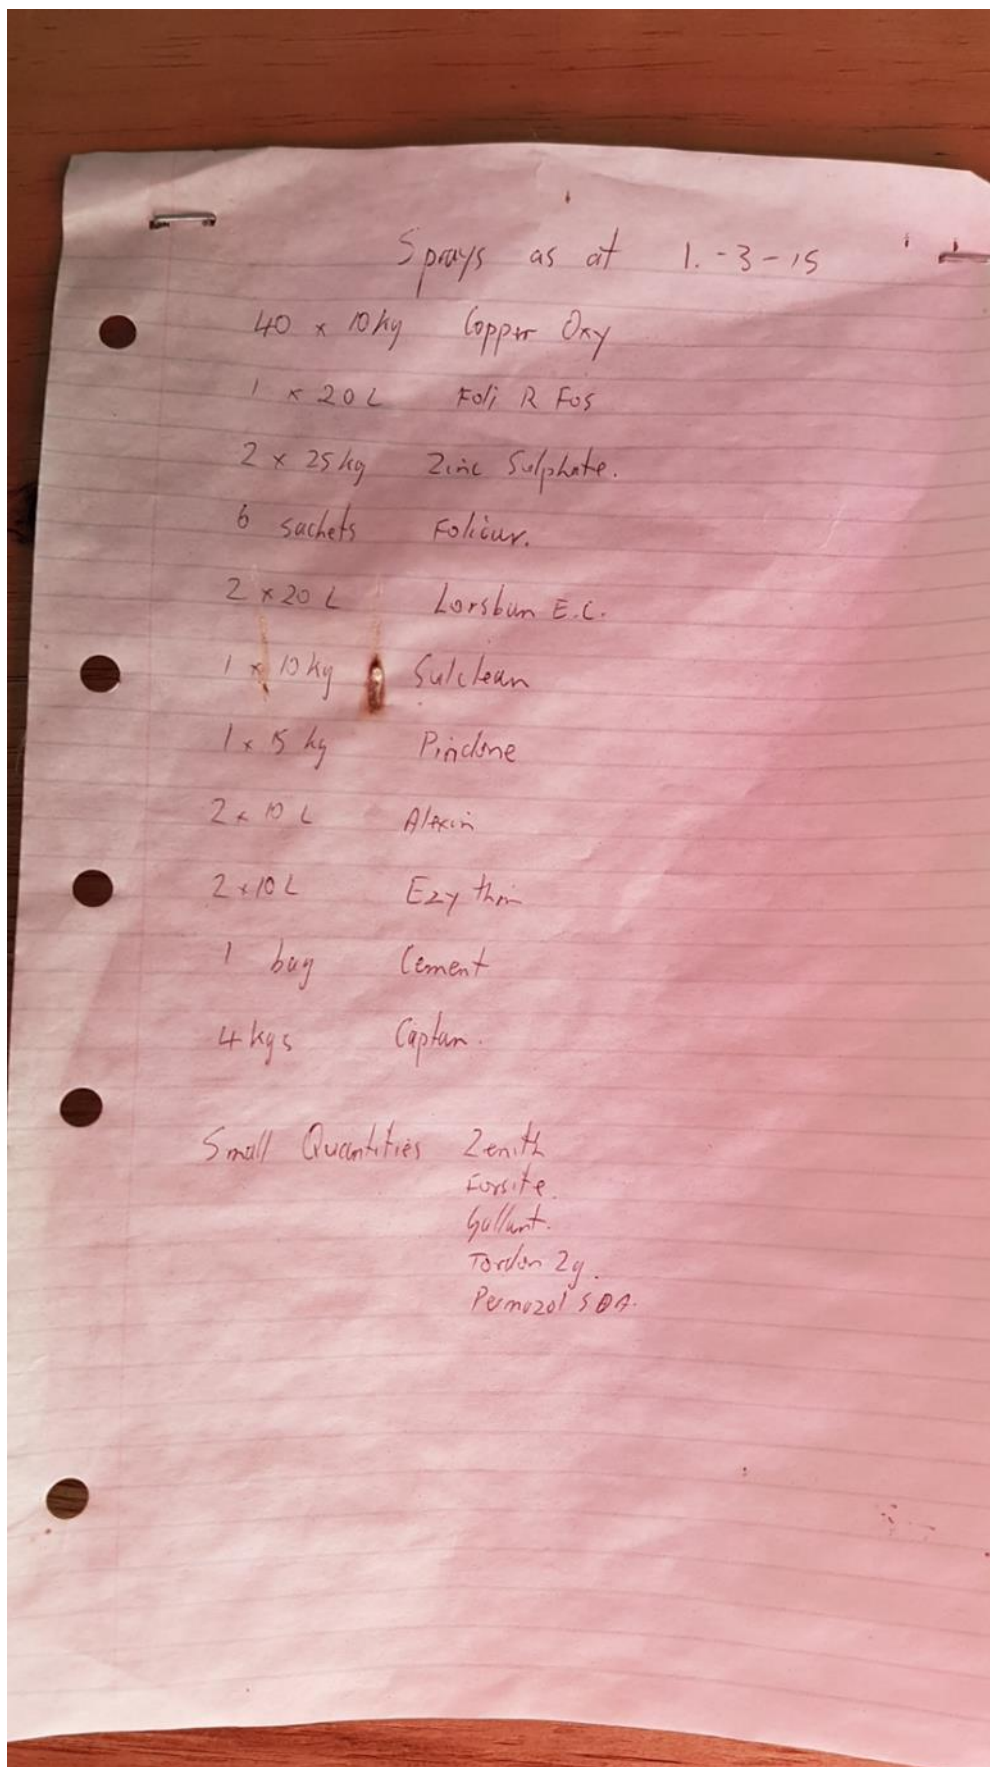 Sprays as at 1.-3-15
40 x 10kg Copper Oxy
1 x 20L Foli R Fos
2 x 25kg Zinc Sulphate.
6 sachets Folicur.
2 x 20 L Lorsban E.C.
1 x 10kg Sulclean
1 x 15 kg Pindone
2 x 10 L Alexin
2 x 10 L Ezy thin
1 bag Cement
4 kgs Captan.
Small Quantities Zenith
Forsite.
Gallant.
Tordon 2g.
Permazol